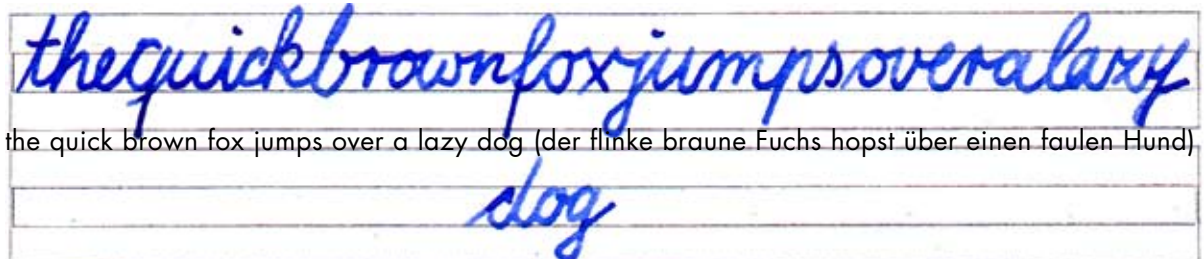 thequickbrownfoxjumpsoveralazy
the quick brown fox jumps over a lazy dog (der flinke braune Fuchs hopst über einen faulen Hund)
dog